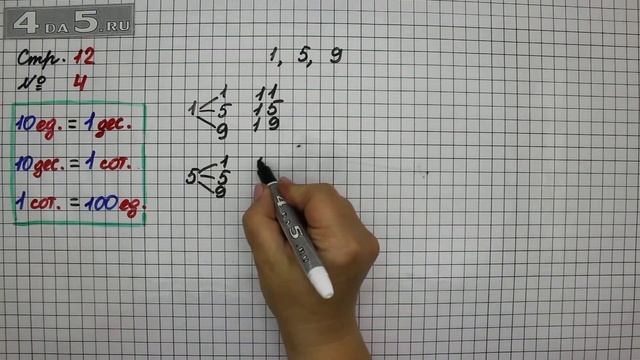 4DA5.RU
Стр. 12
№ 4
1, 5, 9
10 ед. = 1 дес.
10 дес. = 1 сот.
1 сот. = 100 ед.
1 1 11
5 15
9 19
5 1
5
9
4DA5.RU